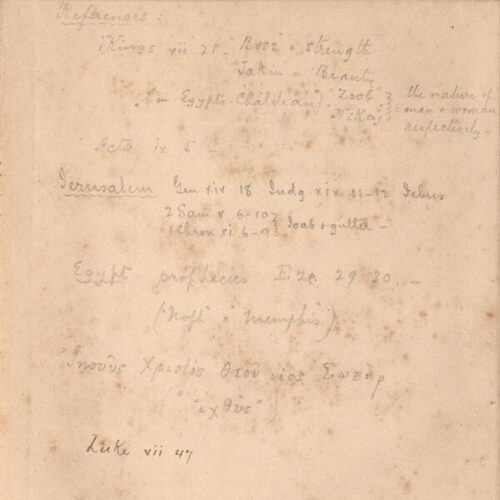 References :
1 Kings vii 21 - "Booz" = strength
"Jakin = Beauty
"in Egypto-Chaldean" "Zoot" } the nature of
"Nikaz" } = man & woman
respectively -
Acts ix 5 -
Jerusalem Gen xiv 18 Judg xix 11-12 Jebus
2 Sam v 6-10 }
1 Chron xi 6-9 } Joab & gutter -
Egypt prophecies Eze 29. 30 -
(Noph = Memphis)
Ιησοῦς Χριστὸς Θεοῦ υἱος Σωτὴρ
"ιχθυς"
Luke vii 47